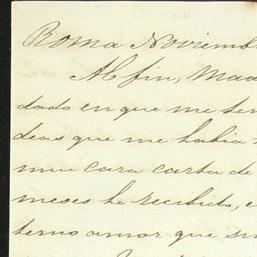 Roma Noviemb
Al fin, Maa
dado en que me ten
deas que me habia
mui cara carta de
meses he recibido, e
terno amor que su